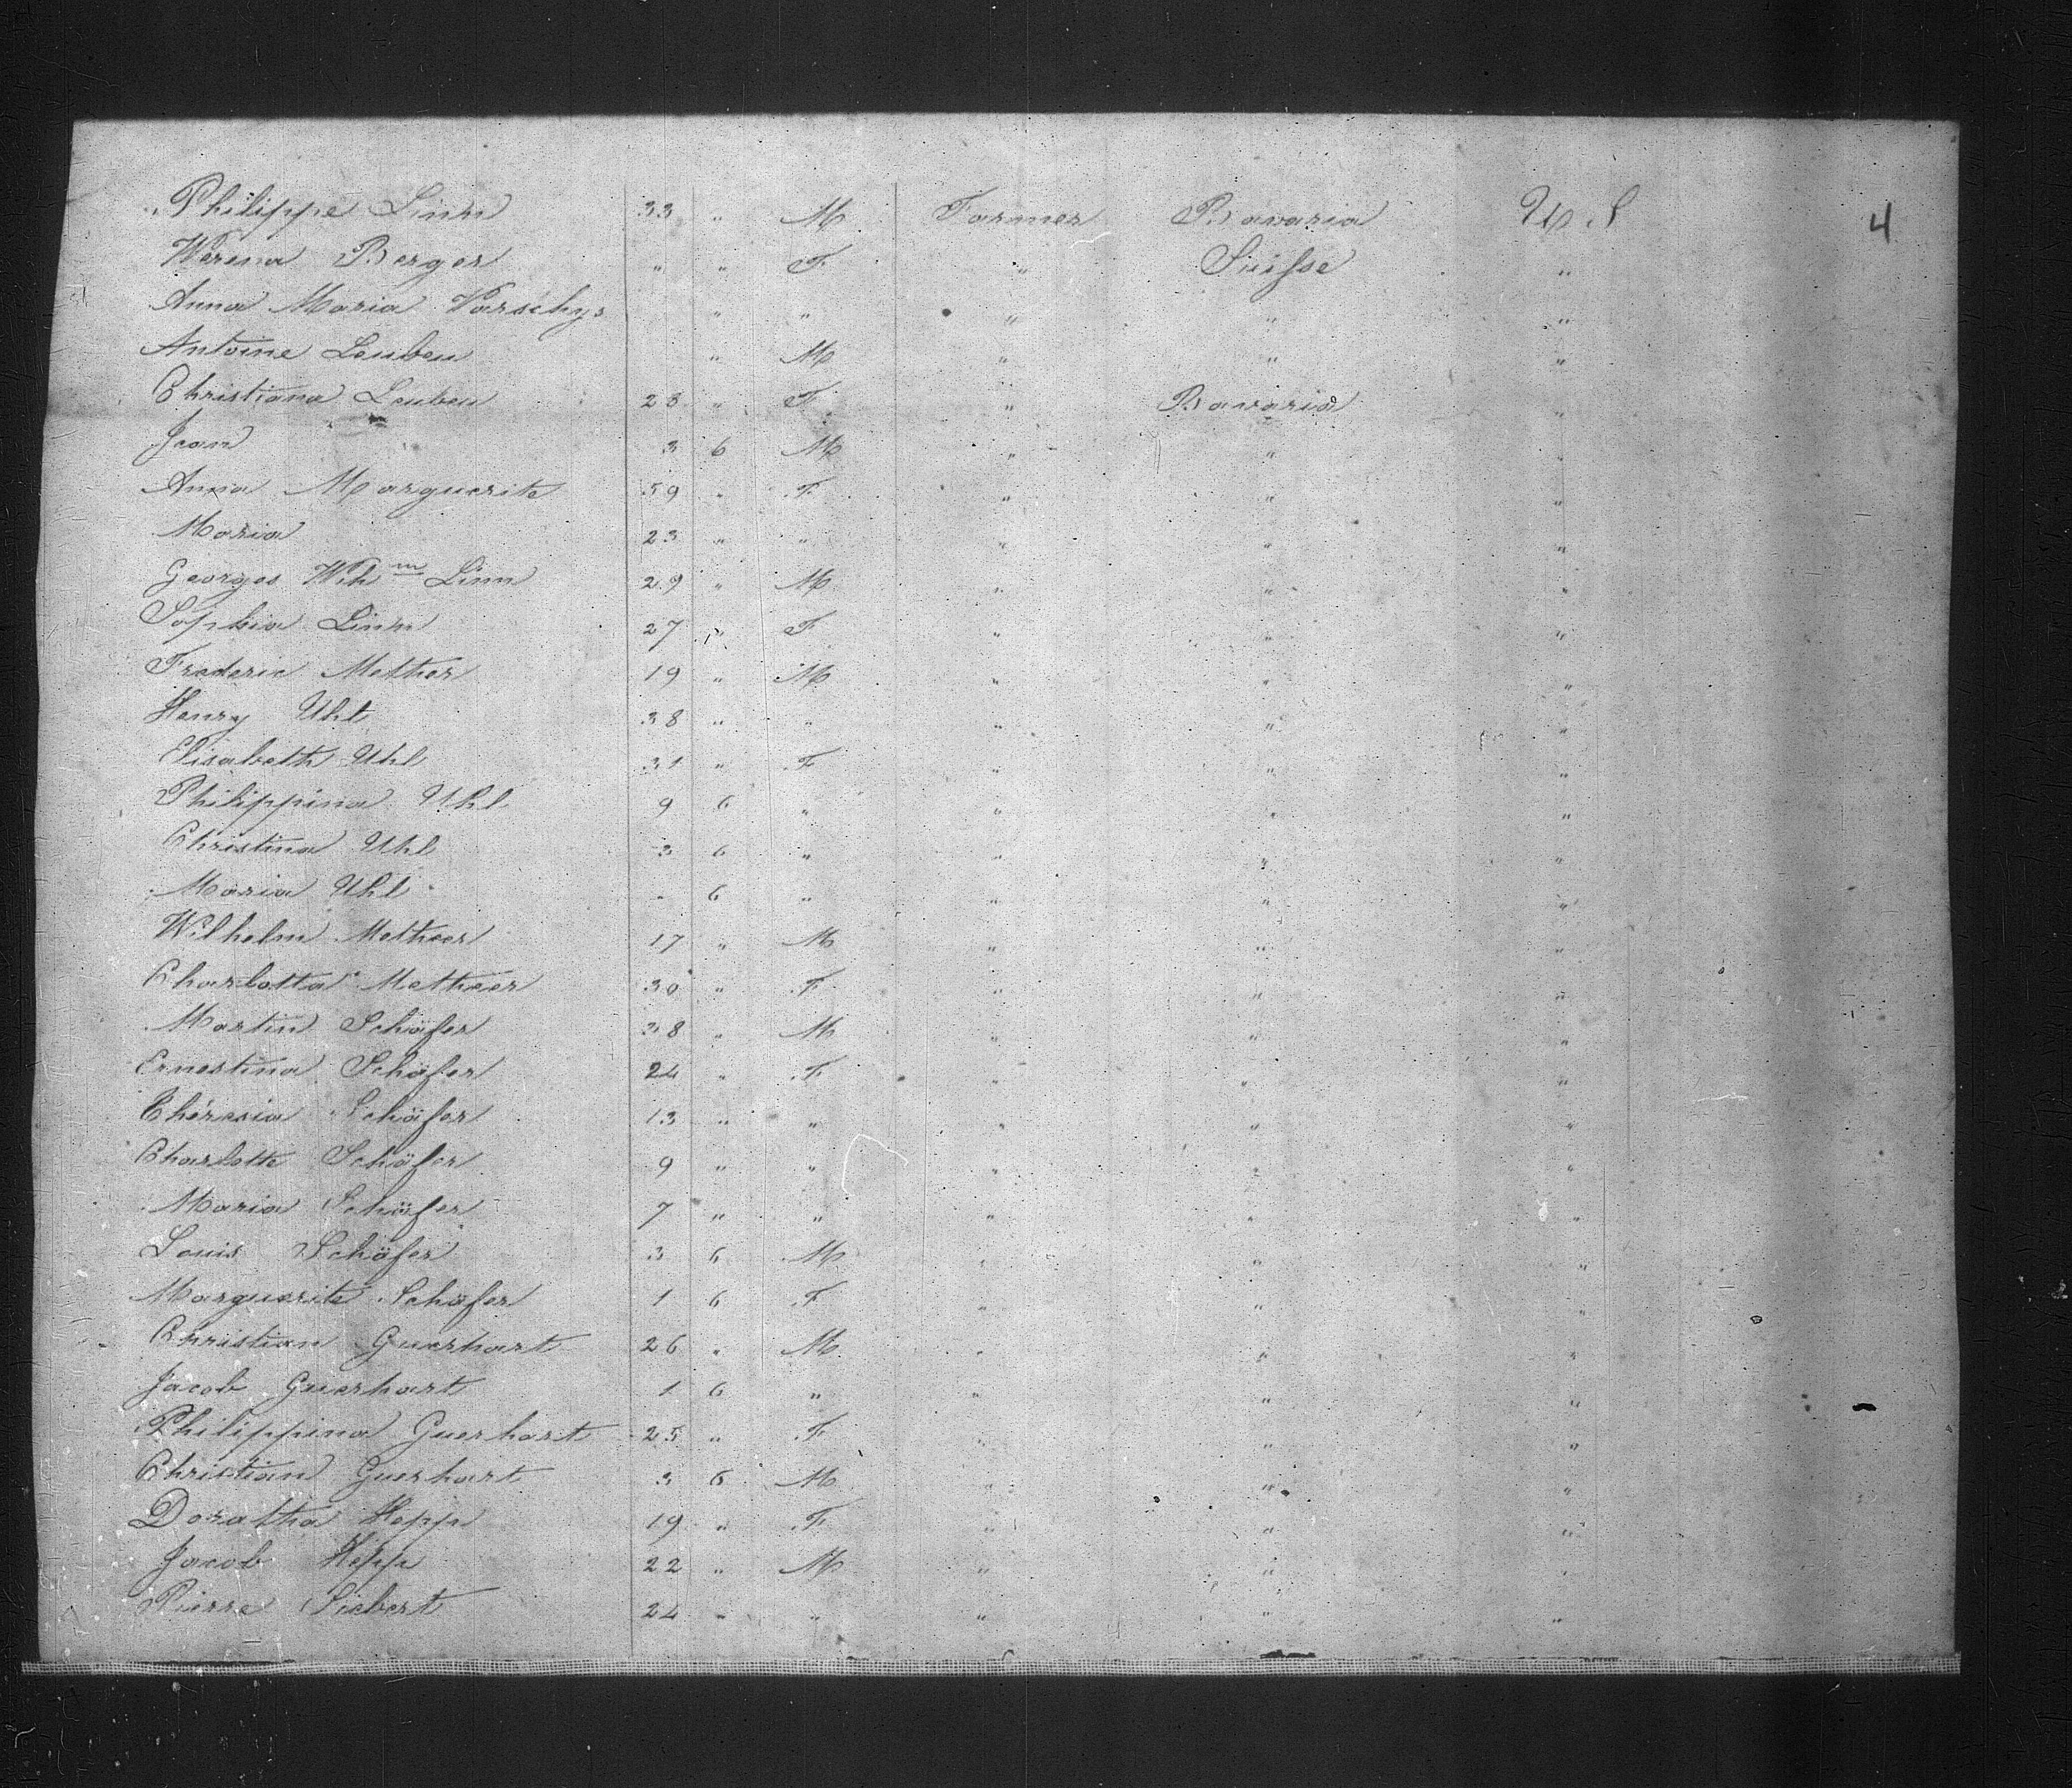 Philippe Linn 33 " M Farmer Bavaria U.S 4
Werena Berger " " F " Suisse "
Anna Maria " " " " "
Antoine Leuben " M " " "
Christiana Leuben 28 " F " Bavaria "
Jean 3 6 M " " "
Anna Marguerite 59 " F " " "
Maria 23 " " " " "
Georges Wihm Linn 29 " M " " "
Sophia Linn 27 " F " " "
Frederic Mether 19 " M " " "
Henry Uhl 38 " " " " "
Elisabeth Uhl 31 " F " " "
Philippina Uhl 9 6 " " " "
Christina Uhl 3 6 " " " "
Maria Uhl " 6 " " " "
Wilhelm Metheer 17 " M " " "
Charlotta Metheer 30 " F " " "
Martin Schäfer 38 " M " " "
Ernestina Schäfer 24 " F " " "
Théresia Schäfer 13 " " " " "
Charlotte Schäfer 9 " " " " "
Maria Schäfer 7 " " " " "
Louis Schäfer 3 6 M " " "
Marguerite Schäfer 1 6 F " " "
Christian Guerhart 26 " M " " "
Jacob Guerhart 1 6 " " " "
Philippina Guerhart 25 " F " " "
Christian Guerhart 3 6 M " " "
Doratha Hepp 19 " F " " "
Jacob Hepp 22 " M " " "
Pierre Siebert 24 " " " " "